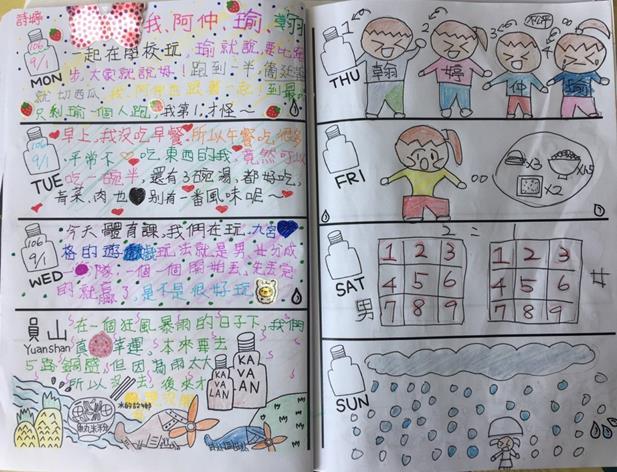 詩婷 我、阿仲、瑜、翰
一起在學校玩，瑜就說，要比跑
步，大家就說好！跑到一半，
就切西瓜，我、阿仲
只剩瑜一個人跑，我第1，才怪～
106
9/1
MON
早上，我沒吃早餐，所以午餐吃很多
平常不吃東西的我，竟然可以
吃一碗半，還有3碗湯，都好吃，
青菜、肉也別有一番風味呢～
106
9/1
TUE
今天體育課，我們在玩，九宮
格的遊戲，玩法就是男、女分成
隊，一個一個開始丟，先丟完
的就贏了，是不是很好玩
106
9/1
WED
員山
Yuanshan
在一個狂風暴雨的日子下，我們
真幸運，本來要去
但因為雨太大
所以沒去，後來才
KAVALAN
KAVALAN
魚丸米粉
THU
1
2
3
4
翰
婷
仲
瑜
FRI
x3
x1.5
x2
SAT
2 = 1
男
1 2 3
4 5 6
7 8 9
1 2 3
4 5 6
7 8 9
SUN